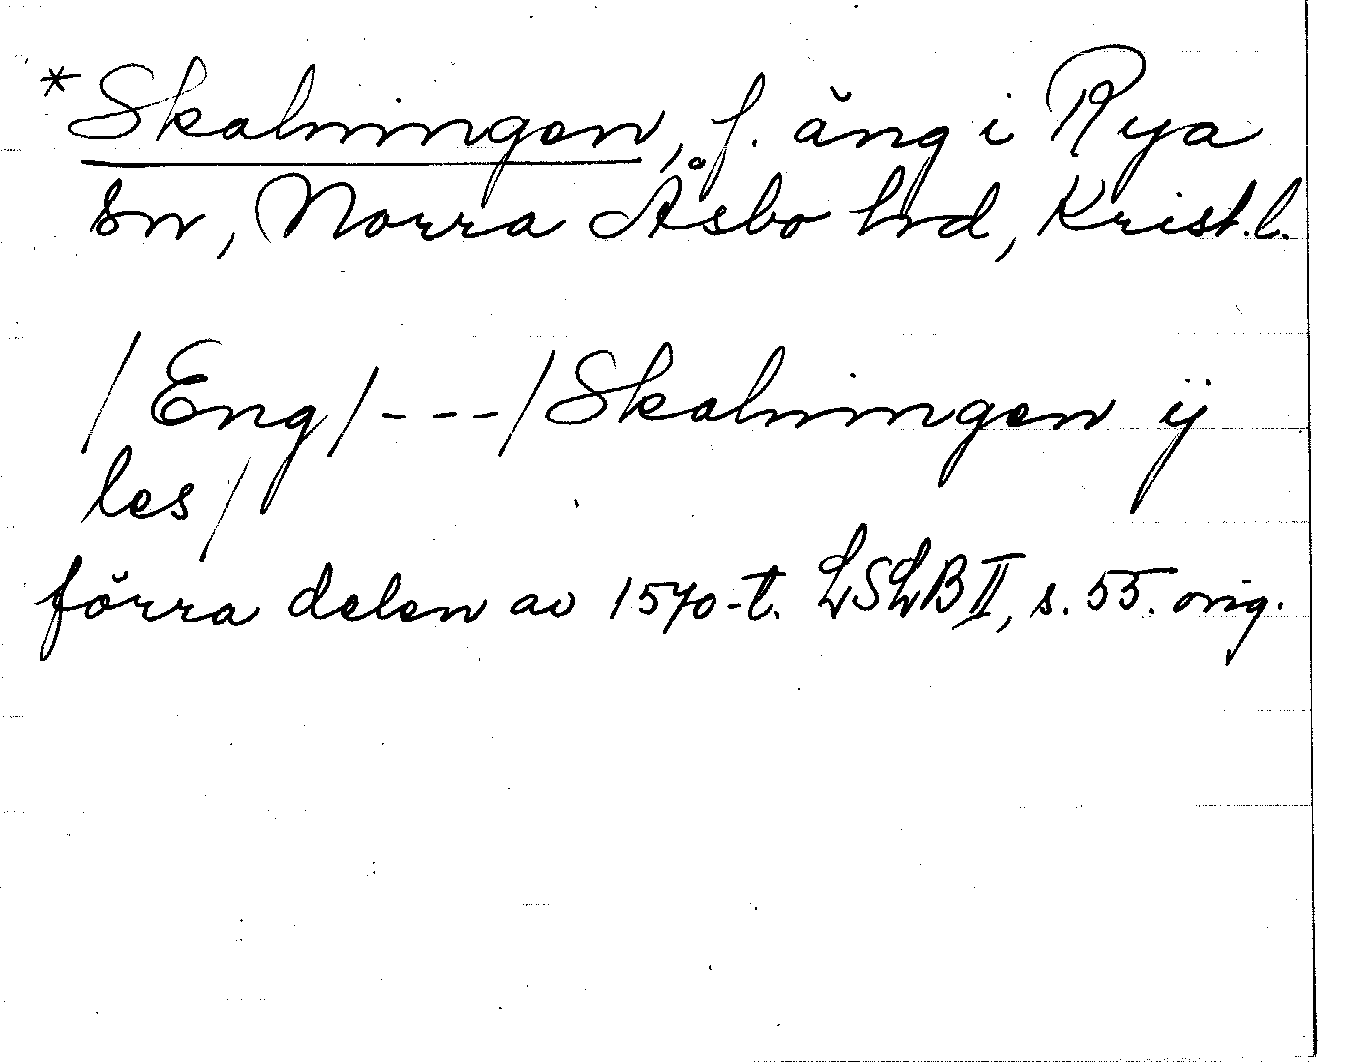 *Skalningen, f. äng i Rya
sn, Norra Åsbo hrd, Krist.l.
/Eng/---/Skalningen ÿ
les/
förra delen av 1570-t. LSLB II, s. 55. orig.